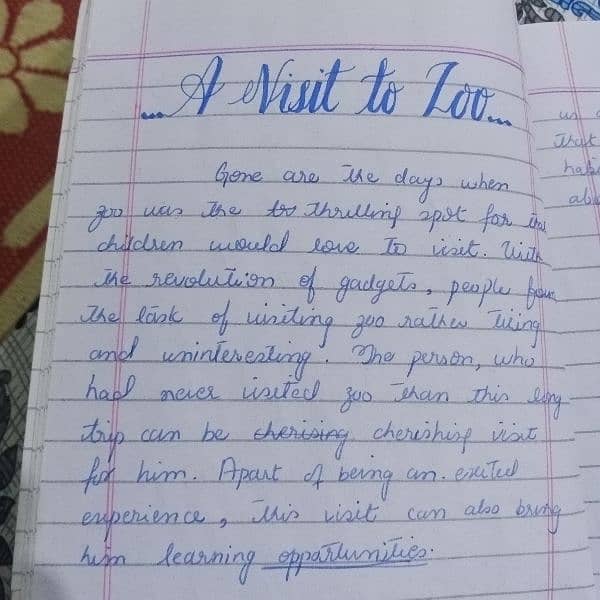 ...A Visit to Zoo...
Gone are the days when
zoo was the to thrilling spot for the
children would love to visit. With
the revolution of gadgets, people four
the task of visiting zoo rather tiring
and uninteresting. The person, who
had never visited zoo than this long
trip can be cherising cherishing visit
for him. Apart of being an. excited
experience, this visit can also bring
him learning oppartunities.
us
That
habi